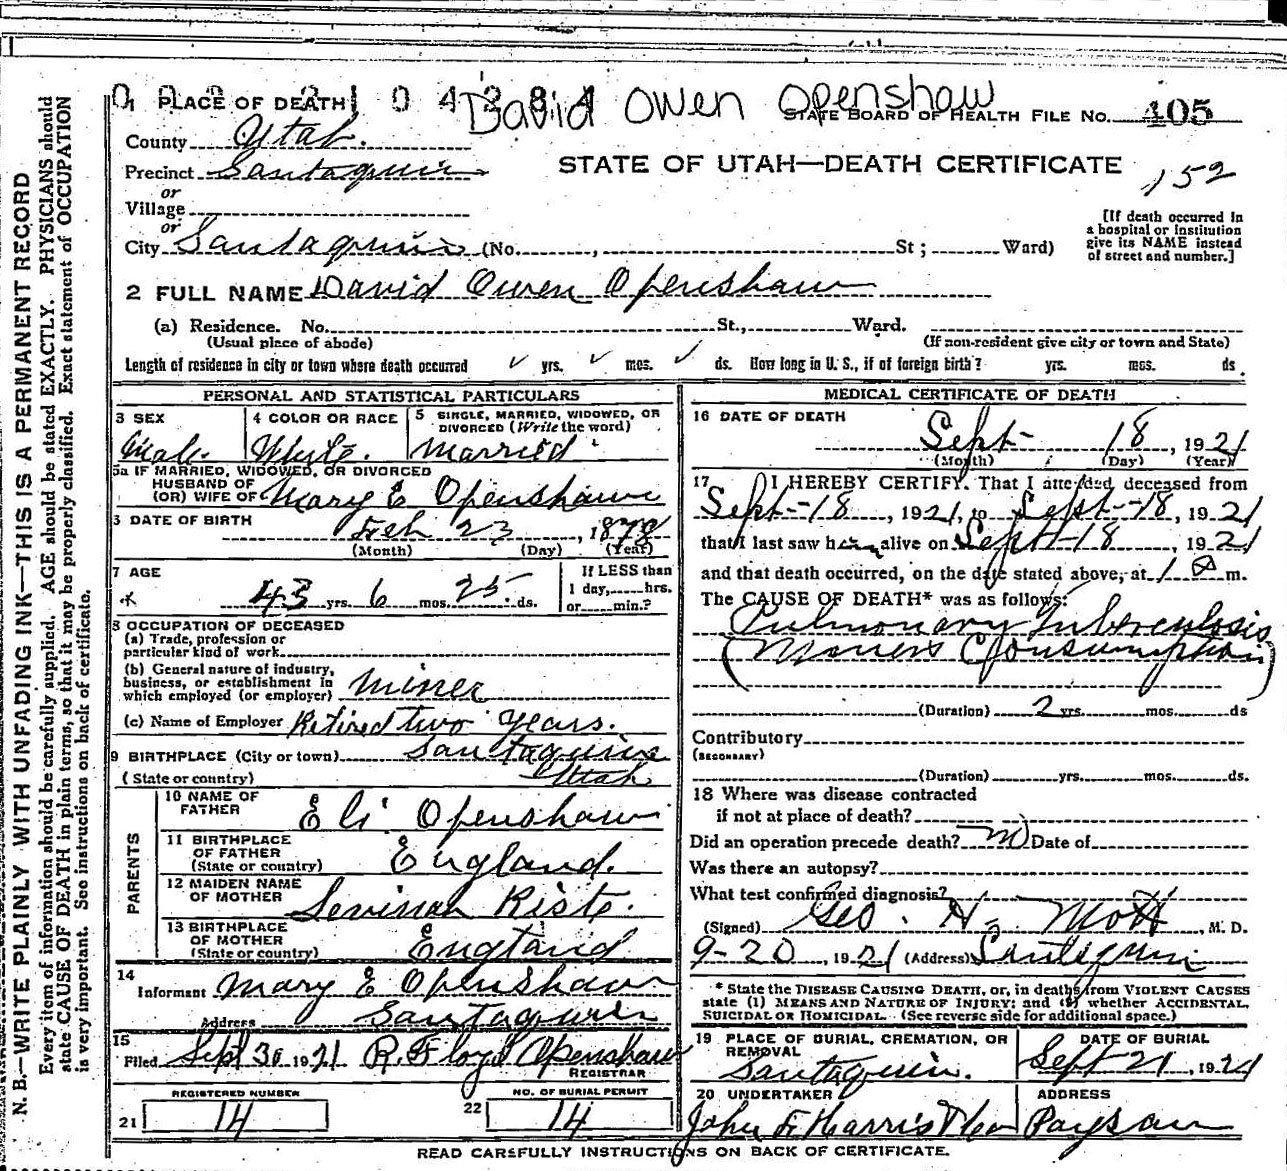 1 PLACE OF DEATH
David Owen Openshaw
STATE BOARD OF HEALTH FILE NO. 405
County Utah.
STATE OF UTAH—DEATH CERTIFICATE
152
Precinct Santaquin
or
Village
or
City Santaquin (No. , St ; Ward)
[If death occurred in
a hospital or institution
give its NAME instead
of street and number.]
2 FULL NAME David Owen Openshaw
(a) Residence. No. St., Ward.
(Usual place of abode) (If non-resident give city or town and State)
Length of residence in city or town where death occurred ✓ yrs. ✓ mos. ✓ ds. How long in U. S., if of foreign birth? yrs. mos. ds.
PERSONAL AND STATISTICAL PARTICULARS
3 SEX
Male.
4 COLOR OR RACE
White.
5 SINGLE, MARRIED, WIDOWED, OR
DIVORCED (Write the word)
Married
5a IF MARRIED, WIDOWED, OR DIVORCED
HUSBAND OF
(OR) WIFE OF Mary E Openshaw
DATE OF BIRTH
Feb 23, 1878
(Month) (Day) (Year)
7 AGE
43 yrs. 6 mos. 25 ds.
If LESS than
1 day, hrs.
or min.?
8 OCCUPATION OF DECEASED
(a) Trade, profession or
particular kind of work
(b) General nature of industry,
business, or establishment in
which employed (or employer) miner
(c) Name of Employer Retired two years.
9 BIRTHPLACE (City or town) Santaquin
(State or country) Utah
PARENTS
10 NAME OF
FATHER Eli Openshaw
11 BIRTHPLACE
OF FATHER
(State or country) England.
12 MAIDEN NAME
OF MOTHER Levinah Riste.
13 BIRTHPLACE
OF MOTHER
(State or country) England
14
Informant Mary E Openshaw
Address Santaquin
15
Filed Sept 30 1921 R. Floyd Openshaw
REGISTRAR
REGISTERED NUMBER
21 14
NO. OF BURIAL PERMIT
22 14
MEDICAL CERTIFICATE OF DEATH
16 DATE OF DEATH
Sept- 18, 1921
(Month) (Day) (Year)
17 I HEREBY CERTIFY, That I attended deceased from
Sept-18, 1921, to Sept-18, 1921
that I last saw him alive on Sept-18, 1921
and that death occurred, on the date stated above, at 1 m.
The CAUSE OF DEATH* was as follows:
Pulmonary Tuberculosis
(Miners Consumption)
(Duration) 2 yrs. mos. ds
Contributory
(SECONDARY)
(Duration) yrs. mos. ds.
18 Where was disease contracted
if not at place of death?
Did an operation precede death? no Date of
Was there an autopsy?
What test confirmed diagnosis?
(Signed) Geo. H. Mott, M. D.
9-20, 1921 (Address) Santaquin
* State the DISEASE CAUSING DEATH, or, in deaths from VIOLENT CAUSES
state (1) MEANS AND NATURE OF INJURY; and (2) whether ACCIDENTAL,
SUICIDAL OR HOMICIDAL. (See reverse side for additional space.)
19 PLACE OF BURIAL, CREMATION, OR
REMOVAL
Santaquin.
DATE OF BURIAL
Sept 21, 1921
20 UNDERTAKER
John F Harris
ADDRESS
Payson
READ CAREFULLY INSTRUCTIONS ON BACK OF CERTIFICATE.
N. B.—WRITE PLAINLY WITH UNFADING INK—THIS IS A PERMANENT RECORD
Every item of information should be carefully supplied. AGE should be stated EXACTLY. PHYSICIANS should
state CAUSE OF DEATH in plain terms, so that it may be properly classified. Exact statement of OCCUPATION
is very important. See instructions on back of certificate.